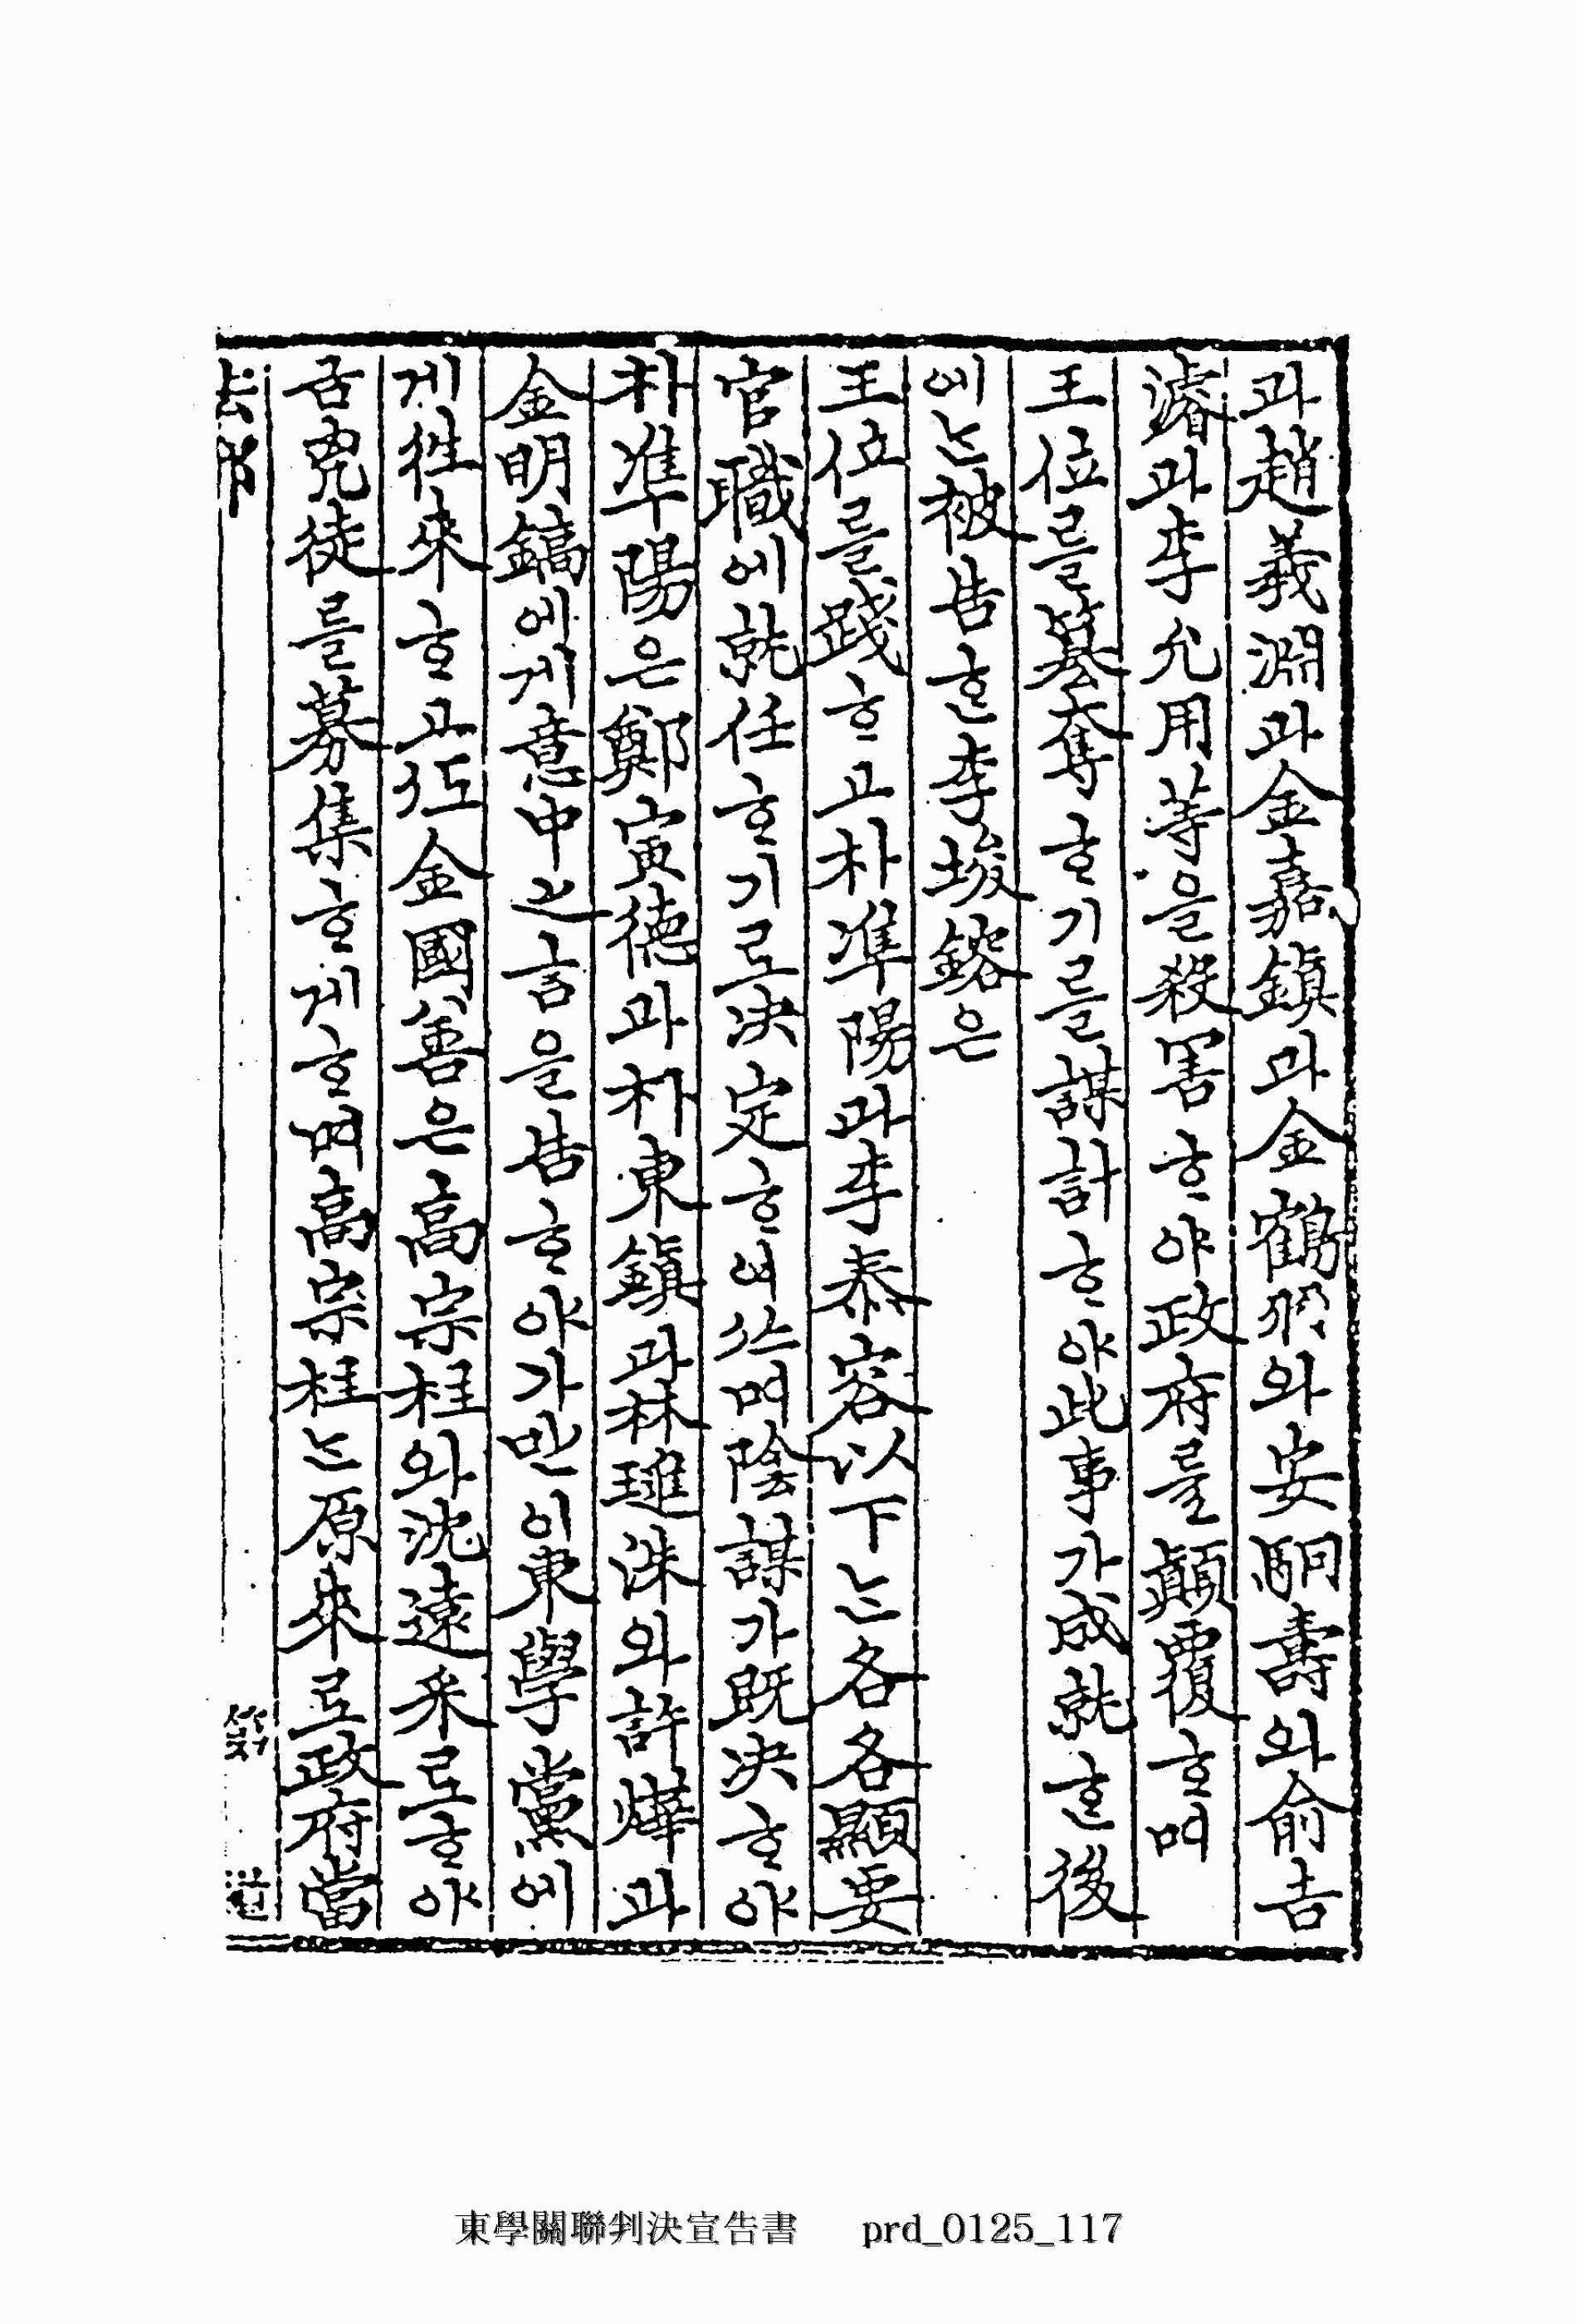 과趙義淵과金嘉鎭과金鶴羽와安駉壽와俞吉
濬과李允用等을殺害ᄒᆞ야政府를顚覆ᄒᆞ며
王位를簒奪ᄒᆞ기를謀計ᄒᆞ야此事가成就ᄒᆞᆫ後
에ᄂᆞᆫ被告ᄒᆞᆫ李埈鎔은
王位를踐ᄒᆞ고朴準陽과李泰容以下ᄂᆞᆫ各各顯要
官職에就任ᄒᆞ기로決定ᄒᆞ여쓰며陰謀가旣決ᄒᆞ야
朴準陽은鄭寅德과朴東鎭과林璡洙와許燁과
金明鎬에게意中之言을告ᄒᆞ야가만이東學黨에
게徃來ᄒᆞ고 金國善은高宗柱와沈遠采로ᄒᆞ야
금兇徒를募集ᄒᆞ게ᄒᆞ며高宗柱ᄂᆞᆫ原來로政府當
東學關聯判決宣告書 prd_0125_117